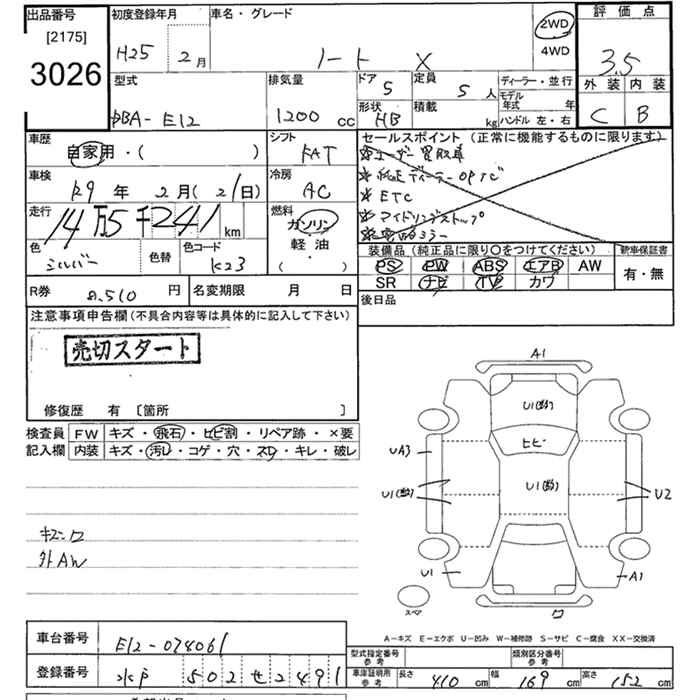 出品番号 初度登録年月 車名・グレード 評価点
[2175] 2WD
3026 H25 2月 ノート X 4WD 3.5
型式 排気量 ドア 5 定員 5人 ディーラー・並行 外装 内装
DBA-E12 1200cc 形状 HB 積載 kg モデル年式 年 C B
ハンドル 左・右
車歴 シフト セールスポイント (正常に機能するものに限ります)
自家用・( ) FAT ユーザー買取車
車検 冷房 純正ディーラーOPナビ
R9年 2月(21日) AC ETC
走行 燃料 アイドリングストップ
14万5千241km ガソリン
色 色替 色コード 軽油 装備品 (純正品に限り○をつけてください) 新車保証書
シルバー K23 ( ) PS PW ABS エアB AW 有・無
SR ナビ TV カワ
R券 8,510円 名変期限 月 日 後日品
注意事項申告欄(不具合内容等は具体的に記入して下さい)
売切スタート
A1
修復歴 有 [箇所 ]
検査員 FW キズ・飛石・ヒビ割・リペア跡・×要
記入欄 内装 キズ・汚レ・コゲ・穴・スレ・キレ・破レ
ヒビ
UA3
U2
外AW
U1 A1
A-キズ E-エクボ U-凹み W-補修跡 S-サビ C-腐食 XX-交換済
車台番号 E12-074061
型式指定番号 参考 類別区分番号 参考
登録番号 水戸 502せ2491
車庫証明用 参考 長さ 410cm 幅 169cm 高さ 152cm